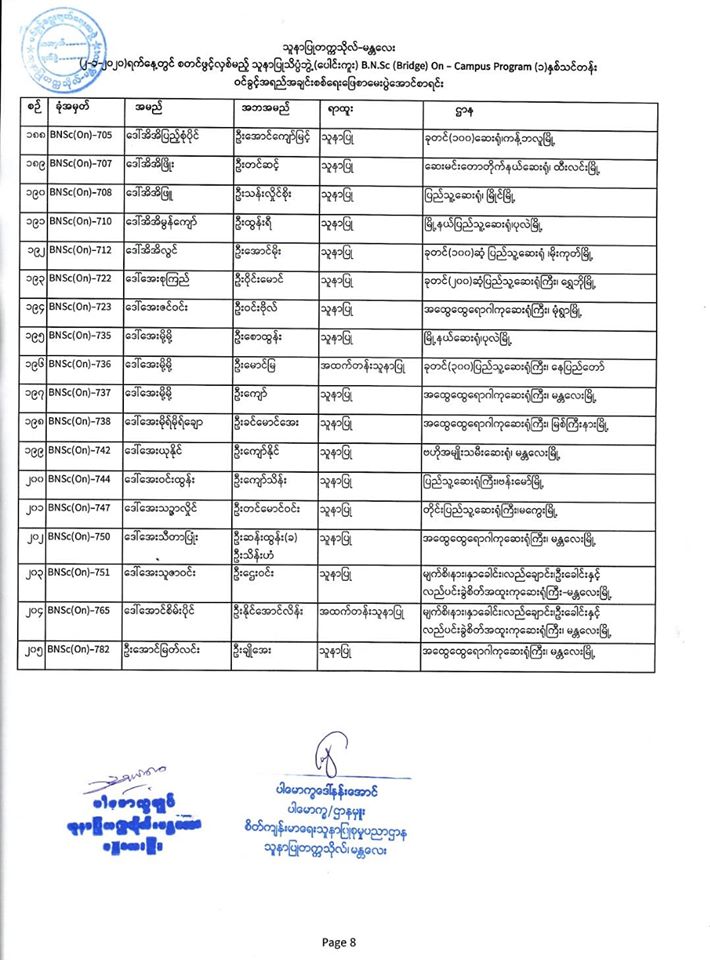 သူနာပြုတက္ကသိုလ်-မန္တလေး
(၂-၁-၂၀၂၀)ရက်နေ့တွင် စတင်ဖွင့်လှစ်မည့် သူနာပြုသိပ္ပံဘွဲ့(ပေါင်းကူး) B.N.Sc (Bridge) On – Campus Program (၁)နှစ်သင်တန်း
ဝင်ခွင့်အရည်အချင်းစစ်ရေးဖြေစာမေးပွဲအောင်စာရင်း
စဉ် ခုံအမှတ် အမည် အဘအမည် ရာထူး ဌာန
၁၈၈ BNSc(On)–705 ဒေါ်အိအိပြည့်စုံပိုင် ဦးအောင်ကျော်မြင့် သူနာပြု ခုတင်(၁၀၀)ဆေးရုံ၊ကန့်ဘလူမြို့
၁၈၉ BNSc(On)–707 ဒေါ်အိအိဖြိုး ဦးတင်ဆင့် သူနာပြု ဆေးမင်းတောတိုက်နယ်ဆေးရုံ၊ ထီးလင်းမြို့
၁၉၀ BNSc(On)–708 ဒေါ်အိအိဖြူ ဦးသန်းလှိုင်စိုး သူနာပြု ပြည်သူ့ဆေးရုံ၊ မြိုင်မြို့
၁၉၁ BNSc(On)–710 ဒေါ်အိအိမွန်ကျော် ဦးထွန်းရီ သူနာပြု မြို့နယ်ပြည်သူ့ဆေးရုံ၊ပုလဲမြို့
၁၉၂ BNSc(On)–712 ဒေါ်အိအိလွင် ဦးအောင်မိုး သူနာပြု ခုတင်(၁၀၀)ဆံ့ ပြည်သူ့ဆေးရုံ ၊မိုးကုတ်မြို့
၁၉၃ BNSc(On)–722 ဒေါ်အေးစုကြည် ဦးဝိုင်းမောင် သူနာပြု ခုတင်(၂၀၀)ဆံ့ပြည်သူ့ဆေးရုံကြီး၊ ရွှေဘိုမြို့
၁၉၄ BNSc(On)–723 ဒေါ်အေးဇင်ဝင်း ဦးဝင်းဗိုလ် သူနာပြု အထွေထွေရောဂါကုဆေးရုံကြီး၊ မုံရွာမြို့
၁၉၅ BNSc(On)–735 ဒေါ်အေးမို့မို့ ဦးစောထွန်း သူနာပြု မြို့နယ်ဆေးရုံ၊ပုလဲမြို့
၁၉၆ BNSc(On)–736 ဒေါ်အေးမို့မို့ ဦးမောင်မြ အထက်တန်းသူနာပြု ခုတင်(၃၀၀)ပြည်သူ့ဆေးရုံကြီး၊ နေပြည်တော်
၁၉၇ BNSc(On)–737 ဒေါ်အေးမို့မို့ ဦးကျော် သူနာပြု အထွေထွေရောဂါကုဆေးရုံကြီး၊ မန္တလေးမြို့
၁၉၈ BNSc(On)–738 ဒေါ်အေးမိုရ်မိုရ်ချော ဦးခင်မောင်အေး သူနာပြု အထွေထွေရောဂါကုဆေးရုံကြီး၊ မြစ်ကြီးနားမြို့
၁၉၉ BNSc(On)–742 ဒေါ်အေးယုနိုင် ဦးကျော်နိုင် သူနာပြု ဗဟိုအမျိုးသမီးဆေးရုံ၊ မန္တလေးမြို့
၂၀၀ BNSc(On)–744 ဒေါ်အေးဝင်းထွန်း ဦးကျော်သိန်း သူနာပြု ပြည်သူ့ဆေးရုံကြီး၊ဗန်းမော်မြို့
၂၀၁ BNSc(On)–747 ဒေါ်အေးသဥ္ဇာလှိုင် ဦးတင်မောင်ဝင်း သူနာပြု တိုင်းပြည်သူ့ဆေးရုံကြီး၊မကွေးမြို့
၂၀၂ BNSc(On)–750 ဒေါ်အေးသီတာပြုံး ဦးဆန်းထွန်း(ခ) သူနာပြု အထွေထွေရောဂါကုဆေးရုံကြီး၊ မန္တလေးမြို့
ဦးသိန်းဟံ
၂၀၃ BNSc(On)–751 ဒေါ်အေးသူဇာဝင်း ဦးဌေးဝင်း သူနာပြု မျက်စိ၊နား၊နှာခေါင်း၊လည်ချောင်း၊ဦးခေါင်းနှင့်
လည်ပင်းခွဲစိတ်အထူးကုဆေးရုံကြီး–မန္တလေးမြို့
၂၀၄ BNSc(On)–765 ဒေါ်အောင်စိမ်းပိုင် ဦးနိုင်အောင်လိန်း အထက်တန်းသူနာပြု မျက်စိ၊နား၊နှာခေါင်း၊လည်ချောင်း၊ဦးခေါင်းနှင့်
လည်ပင်းခွဲစိတ်အထူးကုဆေးရုံကြီး၊ မန္တလေးမြို့
၂၀၅ BNSc(On)–782 ဦးအောင်မြတ်လင်း ဦးချိုအေး သူနာပြု အထွေထွေရောဂါကုဆေးရုံကြီး၊ မန္တလေးမြို့
ပါမောက္ခဒေါ်နန်းအောင်
ပါမောက္ခ/ဌာနမှူး
စိတ်ကျန်းမာရေးသူနာပြုစုမှုပညာဌာန
သူနာပြုတက္ကသိုလ်၊ မန္တလေး
ပါမောက္ခချုပ်
သူနာပြုတက္ကသိုလ်၊ မန္တလေး
မန္တလေးမြို့
Page 8